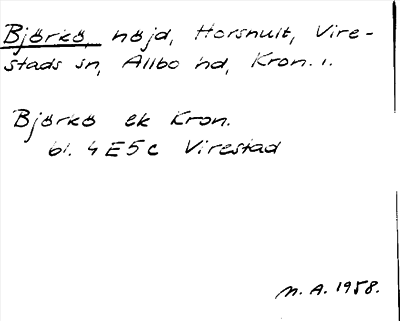 Björkö, höjd, Horshult, Vire-
stads sn, Allbo hd, Kron. l.
Björkö ek Kron.
bl. 4E5c Virestad
N. A. 1958.